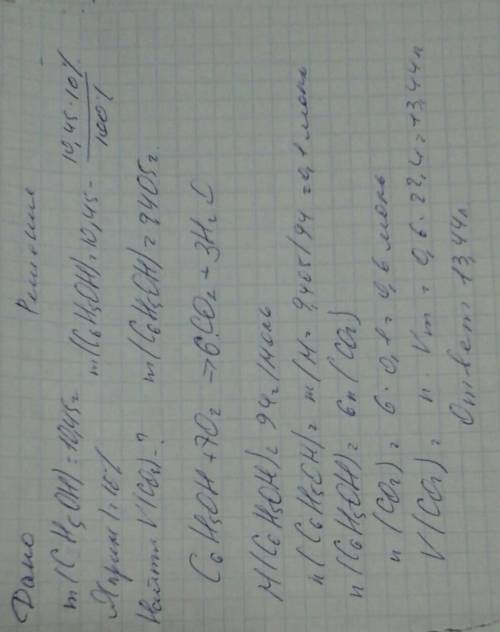 Дано Решение
m(C6H5OH)=10,45г m(C6H5OH)=10,45- 10,45·10%/100%
примη=10%
Найти V(CO2)-? m(C6H5OH)=9,405г
C6H5OH+7O2→6CO2+3H2O
M(C6H5OH)=94г/моль
n(C6H5OH)=m/M=9,405/94=0,1моль
n(C6H5OH)=6n(CO2)
n(CO2)=6·0,1=0,6моль
V(CO2)=n·Vm=0,6·22,4=13,44л
Ответ 13,44л